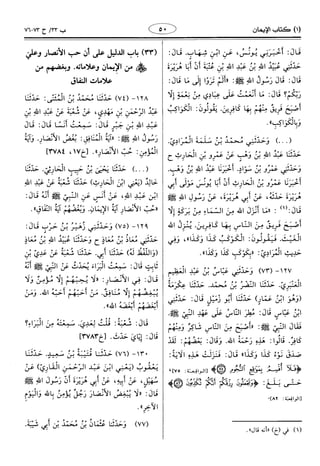 (١) كتاب الإيمان
٥٠
باب ٣٣/ ح ٧٣-٧٦
قَالَ: أَخْبَرَنِي يُونُسُ، عَنِ ابْنِ شِهَابٍ. قَالَ:
حَدَّثَنِي عُبَيْدُ اللهِ بْنُ عَبْدِ اللهِ بْنِ عُتْبَةَ أَنَّ أَبَا هُرَيْرَةَ
قَالَ: قَالَ رَسُولُ اللهِ ﷺ: «أَلَمْ تَرَوْا إِلَى مَا قَالَ
رَبُّكُمْ؟ قَالَ: مَا أَنْعَمْتُ عَلَى عِبَادِي مِنْ نِعْمَةٍ إِلَّا
أَصْبَحَ فَرِيقٌ مِنْهُمْ بِهَا كَافِرِينَ. يَقُولُونَ: الْكَوَاكِبُ
وَبِالْكَوَاكِبِ».
(...) وَحَدَّثَنِي مُحَمَّدُ بْنُ سَلَمَةَ الْمُرَادِيُّ.
حَدَّثَنَا عَبْدُ اللهِ بْنُ وَهْبٍ عَنْ عَمْرِو بْنِ الْحَارِثِ ح
وَحَدَّثَنِي عَمْرُو بْنُ سَوَّادٍ. أَخْبَرَنَا عَبْدُ اللهِ بْنُ وَهْبٍ.
أَخْبَرَنَا عَمْرُو بْنُ الْحَارِثِ أَنَّ أَبَا يُونُسَ مَوْلَى أَبِي
هُرَيْرَةَ حَدَّثَهُ، عَنْ أَبِي هُرَيْرَةَ، عَنْ رَسُولِ اللهِ ﷺ
قَالَ(١): «مَا أَنْزَلَ اللهُ مِنَ السَّمَاءِ مِنْ بَرَكَةٍ إِلَّا
أَصْبَحَ فَرِيقٌ مِنَ النَّاسِ بِهَا كَافِرِينَ. يُنْزِلُ اللهُ
الْغَيْثَ. فَيَقُولُونَ: الْكَوْكَبُ كَذَا وَكَذَا». وَفِي
حَدِيثِ الْمُرَادِيِّ: «بِكَوْكَبِ كَذَا وَكَذَا».
١٢٧- (٧٣) وَحَدَّثَنِي عَبَّاسُ بْنُ عَبْدِ الْعَظِيمِ
الْعَنْبَرِيُّ. حَدَّثَنَا النَّضْرُ بْنُ مُحَمَّدٍ. حَدَّثَنَا عِكْرِمَةُ
(وَهُوَ ابْنُ عَمَّارٍ) حَدَّثَنَا أَبُو زُمَيْلٍ. قَالَ: حَدَّثَنِي
ابْنُ عَبَّاسٍ قَالَ: مُطِرَ النَّاسُ عَلَى عَهْدِ النَّبِيِّ ﷺ.
فَقَالَ النَّبِيُّ ﷺ: «أَصْبَحَ مِنَ النَّاسِ شَاكِرٌ وَمِنْهُمْ
كَافِرٌ. قَالُوا: هَذِهِ رَحْمَةُ اللهِ. وَقَالَ بَعْضُهُمْ: لَقَدْ
صَدَقَ نَوْءُ كَذَا وَكَذَا» قَالَ: فَنَزَلَتْ هَذِهِ الآيَةُ:
﴿فَلَا أُقْسِمُ بِمَوَاقِعِ النُّجُومِ﴾ [الواقعة: ٧٥]
حَتَّى بَلَغَ: ﴿وَتَجْعَلُونَ رِزْقَكُمْ أَنَّكُمْ تُكَذِّبُونَ﴾
[الواقعة: ٨٢].
(١) في (خ) «أنه قال».
(٣٣) باب الدليل على أن حب الأنصار وعلي
من الإيمان وعلاماته. وبغضهم من
علامات النفاق
١٢٨- (٧٤) حَدَّثَنَا مُحَمَّدُ بْنُ الْمُثَنَّى: حَدَّثَنَا
عَبْدُ الرَّحْمَنِ بْنُ مَهْدِيٍّ، عَنْ شُعْبَةَ، عَنْ عَبْدِ اللهِ بْنِ
عَبْدِ اللهِ بْنِ جَبْرٍ قَالَ: سَمِعْتُ أَنَسًا قَالَ: قَالَ
رَسُولُ اللهِ ﷺ: «آيَةُ الْمُنَافِقِ: بُغْضُ الأَنْصَارِ. وَآيَةُ
الْمُؤْمِنِ: حُبُّ الأَنْصَارِ». [خ ١٧، ٣٧٨٤]
(...) حَدَّثَنَا يَحْيَى بْنُ حَبِيبٍ الْحَارِثِيُّ. حَدَّثَنَا
خَالِدٌ (يَعْنِي ابْنَ الْحَارِثِ) حَدَّثَنَا شُعْبَةُ عَنْ عَبْدِ اللهِ
ابْنِ عَبْدِ اللهِ، عَنْ أَنَسٍ عَنِ النَّبِيِّ ﷺ أَنَّهُ قَالَ:
«حُبُّ الأَنْصَارِ آيَةُ الإِيمَانِ. وَبُغْضُهُمْ آيَةُ النِّفَاقِ».
١٢٩- (٧٥) وَحَدَّثَنِي زُهَيْرُ بْنُ حَرْبٍ قَالَ:
حَدَّثَنِي مُعَاذُ بْنُ مُعَاذٍ ح وَحَدَّثَنَا عُبَيْدُ اللهِ بْنُ مُعَاذٍ
(وَاللَّفْظُ لَهُ) حَدَّثَنَا أَبِي. حَدَّثَنَا شُعْبَةُ عَنْ عَدِيِّ بْنِ
ثَابِتٍ قَالَ: سَمِعْتُ الْبَرَاءَ يُحَدِّثُ عَنِ النَّبِيِّ ﷺ أَنَّهُ
قَالَ: فِي الأَنْصَارِ: «لَا يُحِبُّهُمْ إِلَّا مُؤْمِنٌ وَلَا
يُبْغِضُهُمْ إِلَّا مُنَافِقٌ. مَنْ أَحَبَّهُمْ أَحَبَّهُ اللهُ. وَمَنْ
أَبْغَضَهُمْ أَبْغَضَهُ اللهُ».
قَالَ: شُعْبَةُ: قُلْتُ لِعَدِيٍّ: سَمِعْتَهُ مِنَ الْبَرَاءِ؟
قَالَ: إِيَّايَ حَدَّثَ. [خ ٣٧٨٣]
١٣٠- (٧٦) حَدَّثَنَا قُتَيْبَةُ بْنُ سَعِيدٍ. حَدَّثَنَا
يَعْقُوبُ (يَعْنِي ابْنَ عَبْدِ الرَّحْمَنِ الْقَارِيَّ) عَنْ
سُهَيْلٍ، عَنْ أَبِيهِ، عَنْ أَبِي هُرَيْرَةَ أَنَّ رَسُولَ اللهِ ﷺ
قَالَ: «لَا يُبْغِضُ الأَنْصَارَ رَجُلٌ يُؤْمِنُ بِاللهِ وَالْيَوْمِ
الآخِرِ».
(٧٧) وَحَدَّثَنَا عُثْمَانُ بْنُ مُحَمَّدِ بْنِ أَبِي شَيْبَةَ.